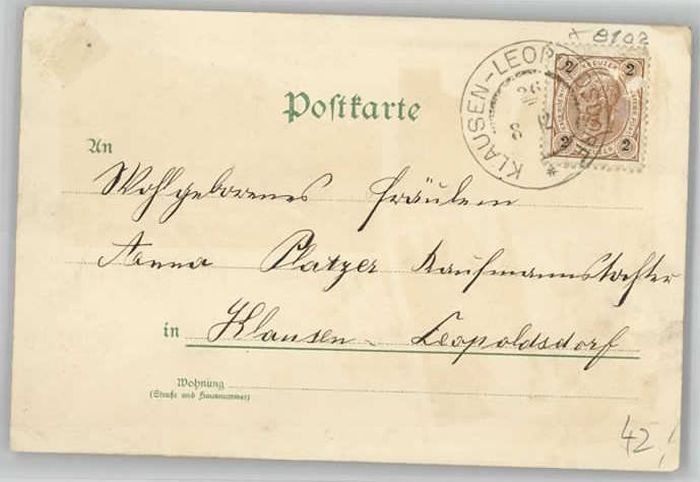 8102
KLAUSEN-LEOPOLDSDORF
26
8
2 2
2 2
Postkarte
An
Wohlgeborenes Fräulein
Anna Platzer Kaufmannstochter
in Klausen-Leopoldsdorf
Wohnung
(Straße und Hausnummer)
42,